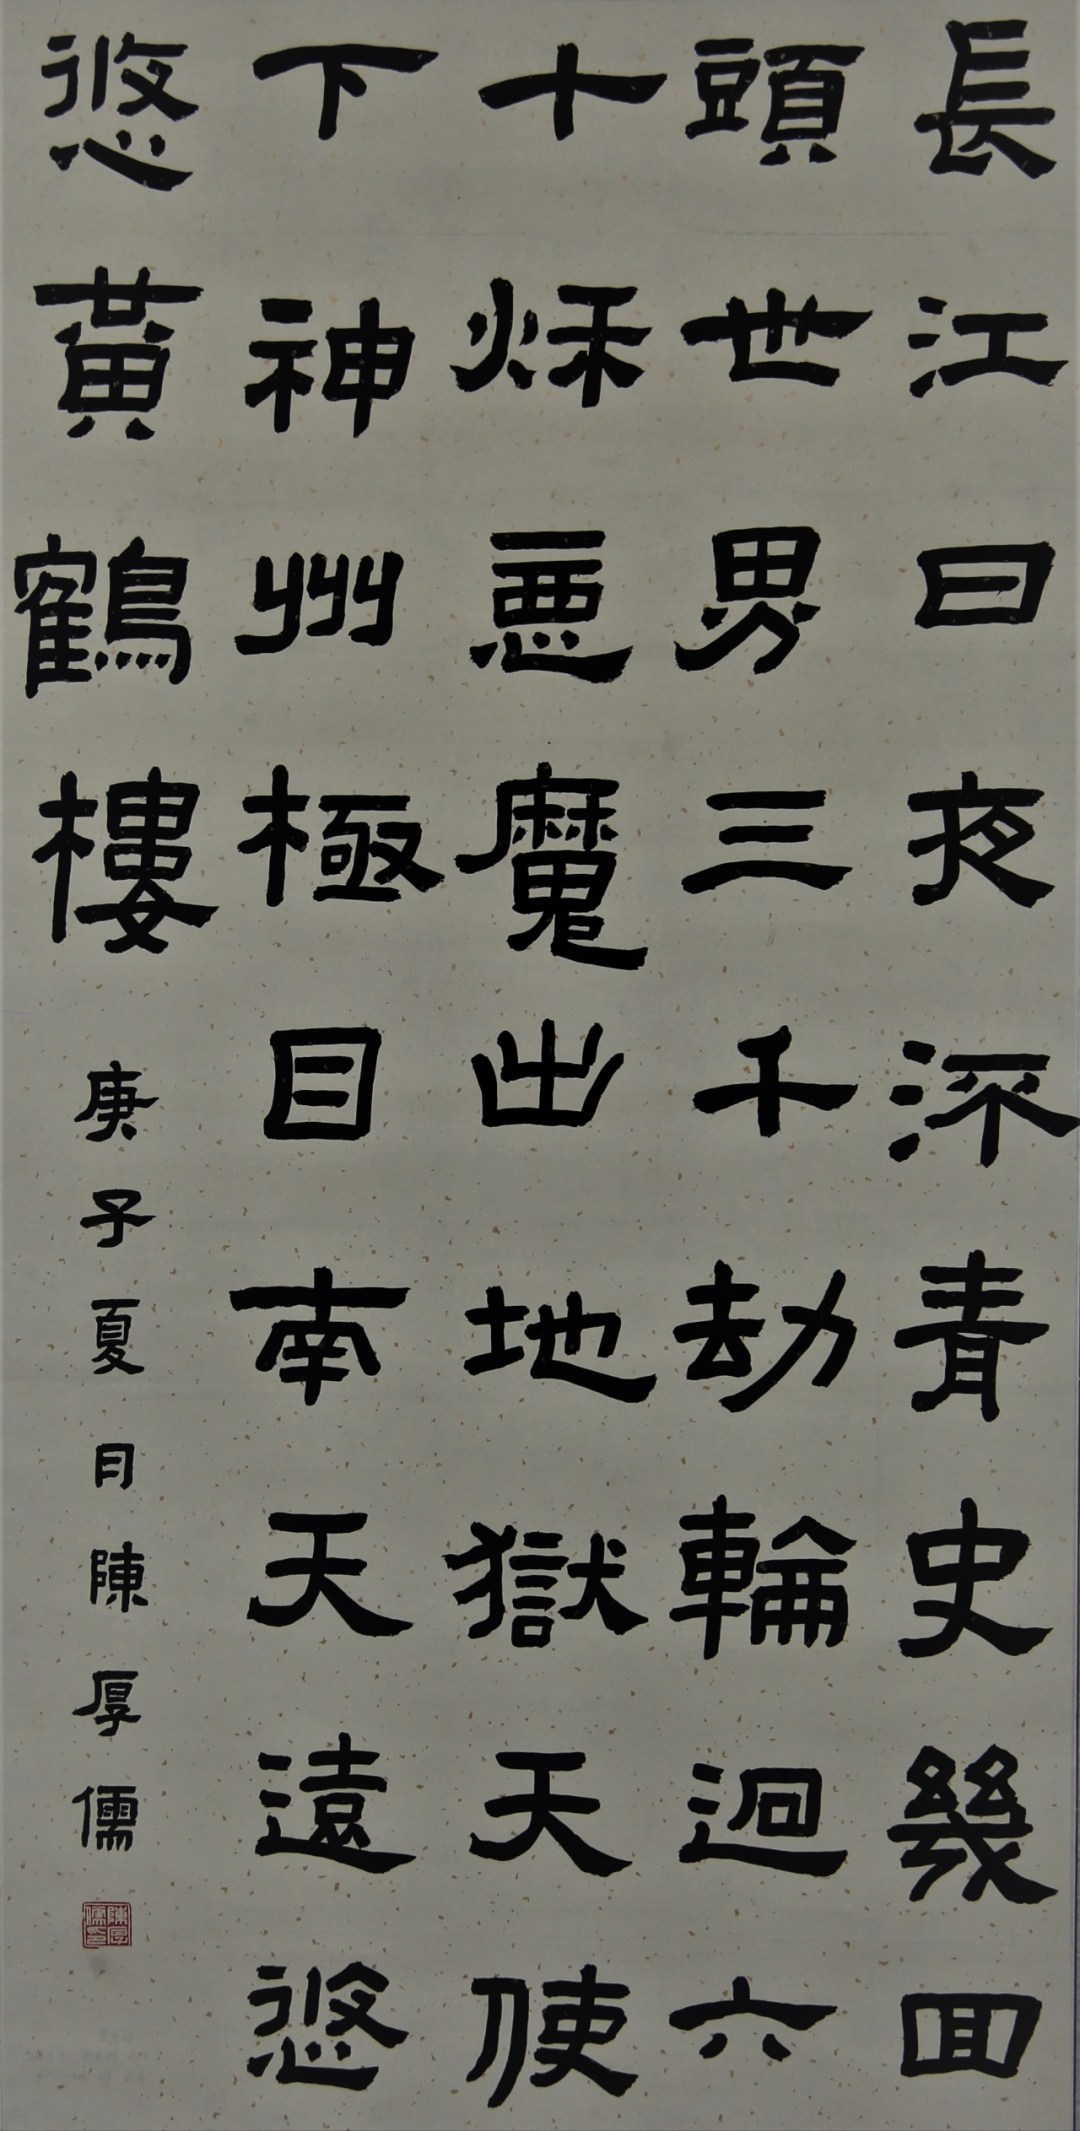 長江日夜流青史幾囬
頭世界三千劫輪迴六
十秌悪魔出地獄天使
下神州極目南天遠悠
悠黃鶴樓
庚子夏月陳厚儒
陳厚儒印